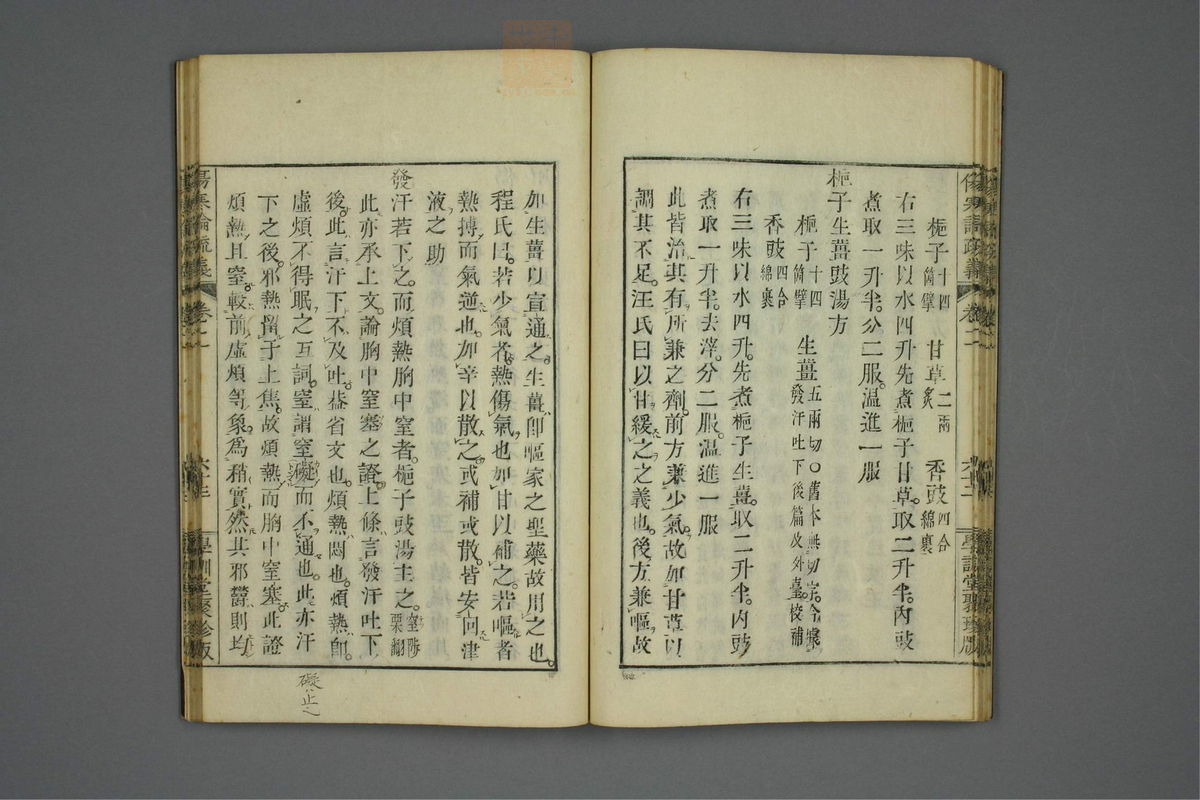 梔子十四箇擘　甘草二兩炙　香豉四合綿裹
右三味以水四升先煮梔子甘草取二升半内豉
煮取一升半分二服溫進一服
梔子生薑豉湯方
梔子十四箇擘　生薑五兩切〇舊本無切字今據發汗吐下後篇及外臺校補
香豉四合綿裹
右三味以水四升先煮梔子生薑取二升半内豉
煮取一升半去滓分二服溫進一服
此皆治其有所兼之劑前方兼少氣故如甘草以
調其不足汪氏曰以甘緩之之義也後方兼嘔故
如生薑以宣通之生薑卽嘔家之聖藥故用之也
程氏曰若少氣者熱傷氣也加甘以補之若嘔者
熱搏而氣逆也加辛以散之或補或散皆安回津
液之助
發汗若下之而煩熱胸中窒者梔子豉湯主之窒陟栗翻
此亦承上文論胸中窒塞之證上條言發汗吐下
後此言汗下不及吐葢省文也煩熱悶也煩熱卽
虛煩不得眠之互詞窒謂窒礙而不通也此亦汗
下之後邪熱留于上焦故煩熱而胸中窒塞此證
煩熱且窒較前虛煩等象爲稍實然其邪鬱則均
傷寒論疏義　卷二
學訓堂聚珍版
礙止